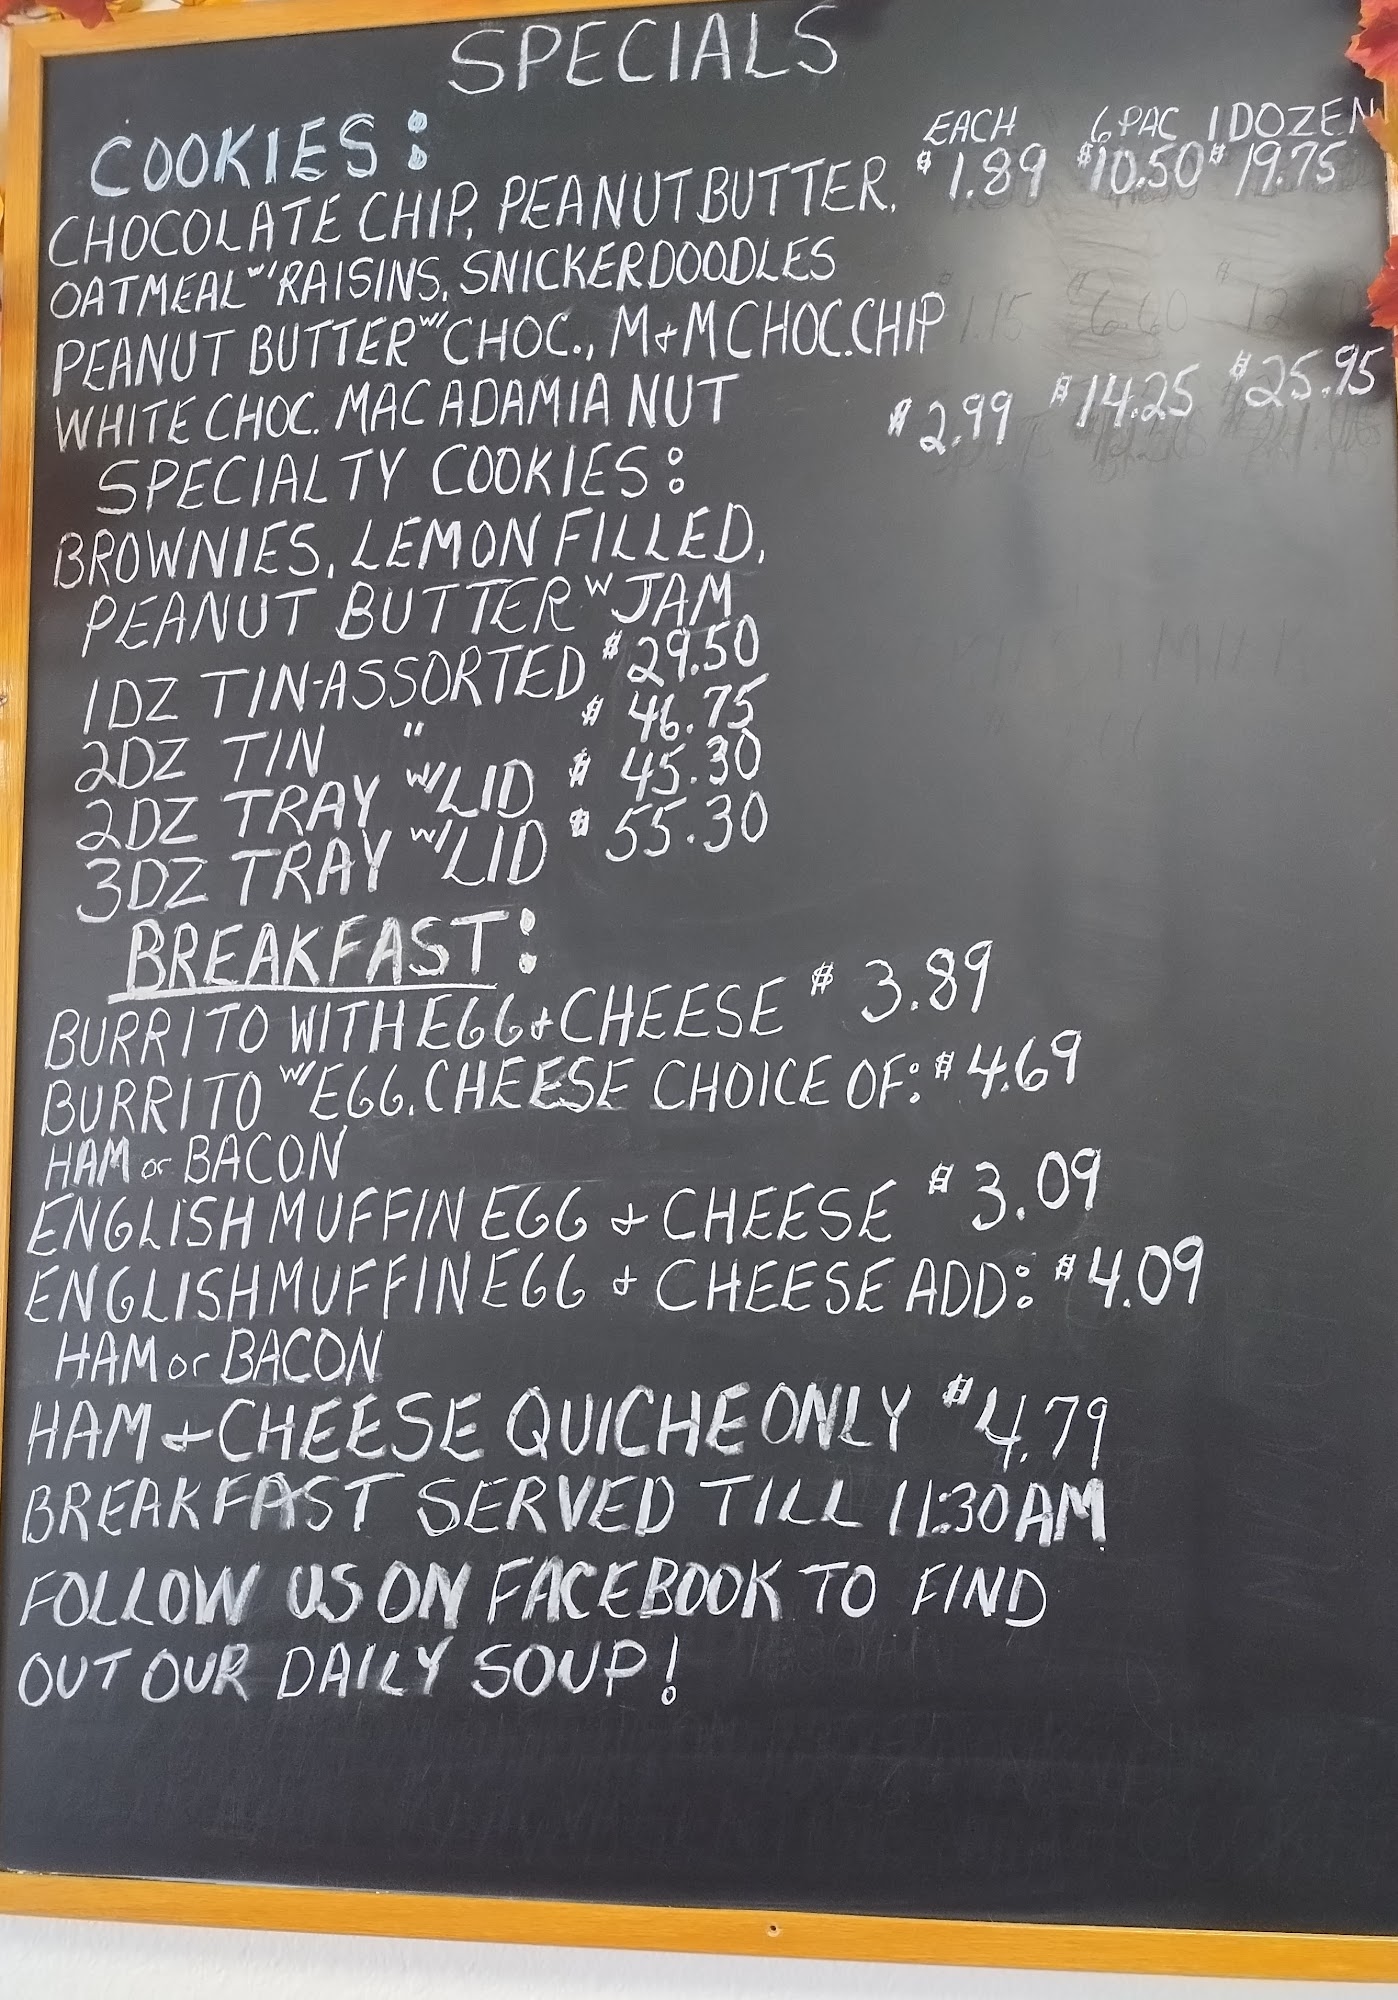 SPECIALS
EACH 6 PAC 1 DOZEN
COOKIES:
CHOCOLATE CHIP, PEANUT BUTTER, $1.89 $10.50 $19.75
OATMEAL W/ RAISINS, SNICKERDOODLES
PEANUT BUTTER W/ CHOC., M+M CHOC.CHIP
WHITE CHOC. MACADAMIA NUT $2.99 $14.25 $25.95
SPECIALTY COOKIES:
BROWNIES, LEMON FILLED,
PEANUT BUTTER W JAM
1DZ TIN-ASSORTED $29.50
2DZ TIN " $46.75
2DZ TRAY W/LID $45.30
3DZ TRAY W/LID $55.30
BREAKFAST:
BURRITO WITH EGG + CHEESE $3.89
BURRITO W/ EGG, CHEESE CHOICE OF: $4.69
HAM or BACON
ENGLISH MUFFIN EGG + CHEESE $3.09
ENGLISH MUFFIN EGG + CHEESE ADD: $4.09
HAM or BACON
HAM + CHEESE QUICHE ONLY $4.79
BREAKFAST SERVED TILL 11:30AM
FOLLOW US ON FACEBOOK TO FIND
OUT OUR DAILY SOUP!